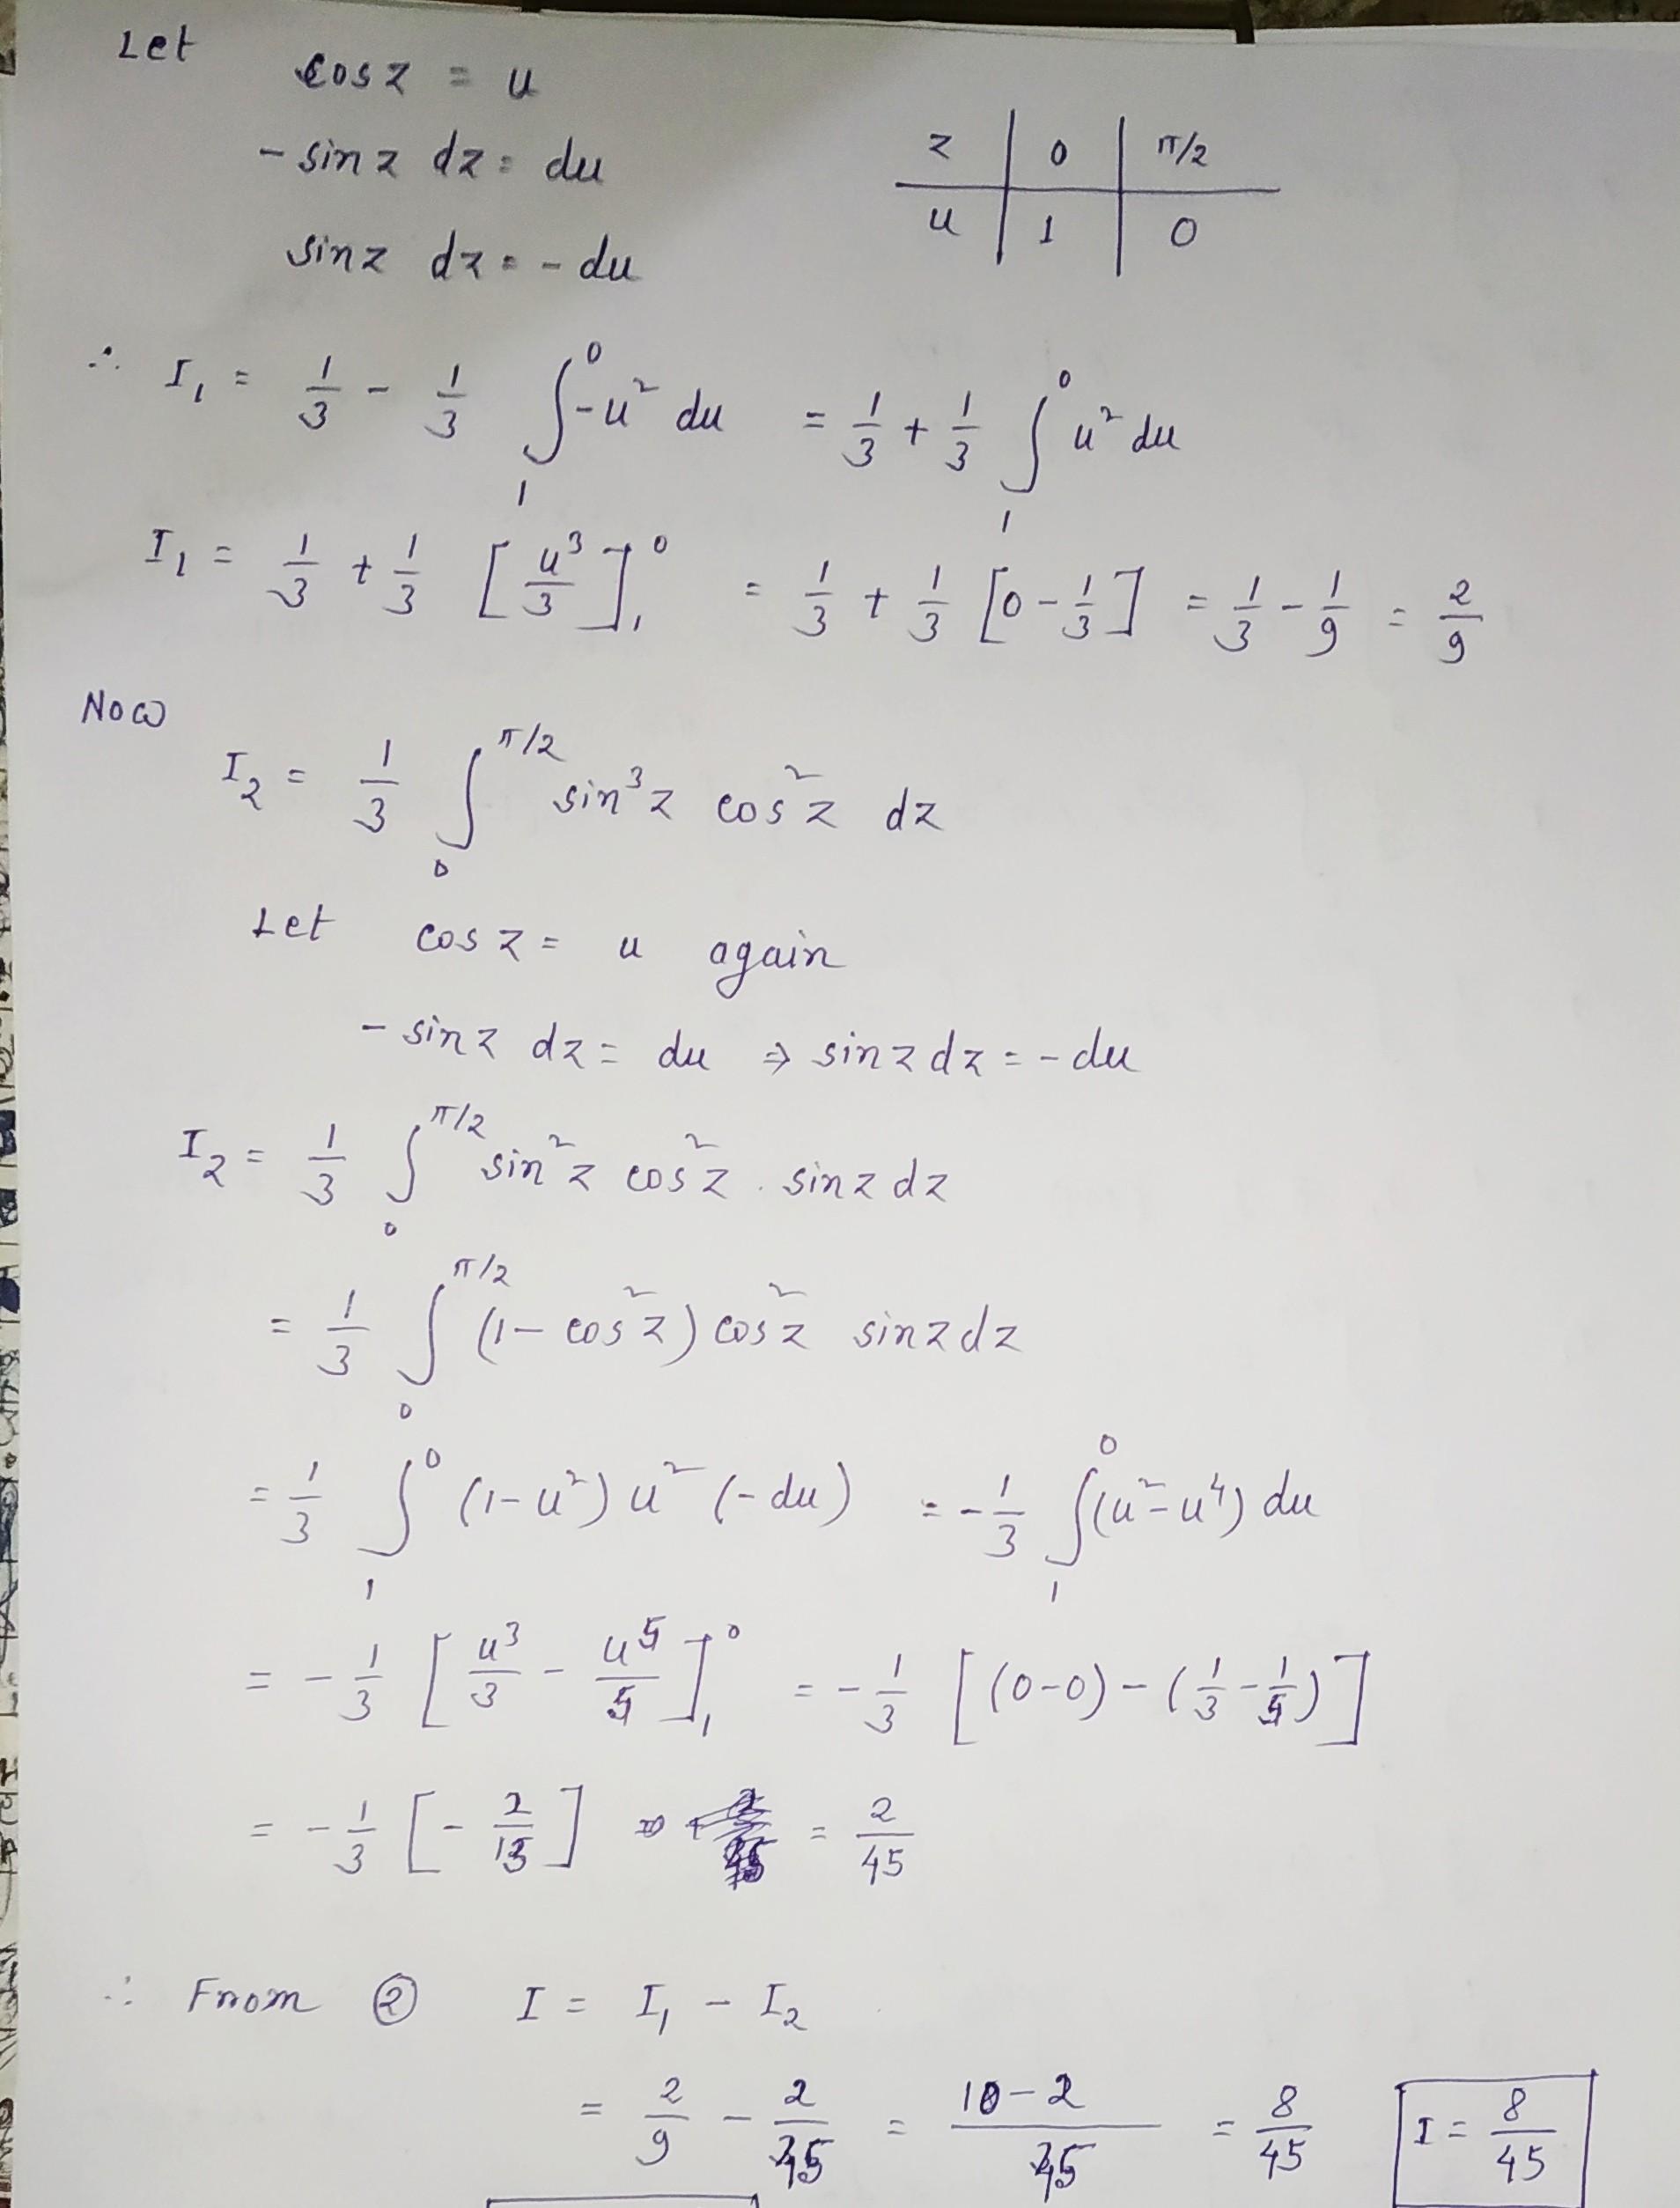 Let cos z = u
- sin z dz = du
sin z dz = - du
z | 0 | π/2
u | 1 | 0
∴ I₁ = 1/3 - 1/3 ∫₁⁰ -u² du = 1/3 + 1/3 ∫₁⁰ u² du
I₁ = 1/3 + 1/3 [u³/3]₁⁰ = 1/3 + 1/3 [0 - 1/3] = 1/3 - 1/9 = 2/9
Now
I₂ = 1/3 ∫₀^π/2 sin³z cos²z dz
Let cos z = u again
- sin z dz = du ⇒ sin z dz = - du
I₂ = 1/3 ∫₀^π/2 sin²z cos²z . sin z dz
= 1/3 ∫₀^π/2 (1 - cos²z) cos²z sin z dz
= 1/3 ∫₁⁰ (1 - u²) u² (-du) = - 1/3 ∫₁⁰ (u² - u⁴) du
= - 1/3 [u³/3 - u⁵/5]₁⁰ = - 1/3 [(0-0) - (1/3 - 1/5)]
= - 1/3 [- 2/15] = 2/45
∴ From ② I = I₁ - I₂
= 2/9 - 2/45 = 10-2/45 = 8/45 I = 8/45